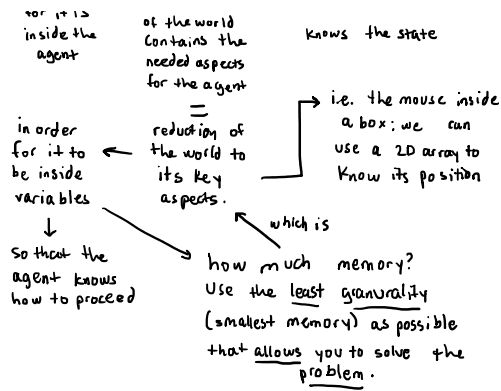 for it is
inside the
agent
of the world
contains the
needed aspects
for the agent
knows the state
=
reduction of
the world to
its key
aspects.
i.e. the mouse inside
a box; we can
use a 2D array to
know its position
in order
for it to
be inside
variables
so that the
agent knows
how to proceed
which is
how much memory?
Use the least granurality
(smallest memory) as possible
that allows you to solve the
problem.